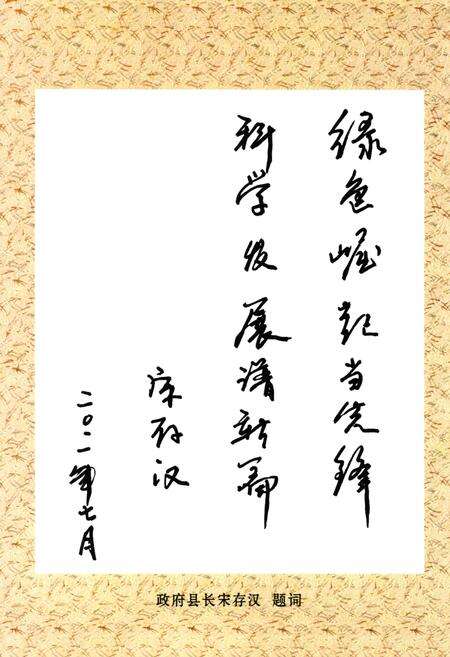 绿色崛起当先锋
科学发展谱新篇
宋存汉
二〇一一年七月
政府县长宋存汉 题词